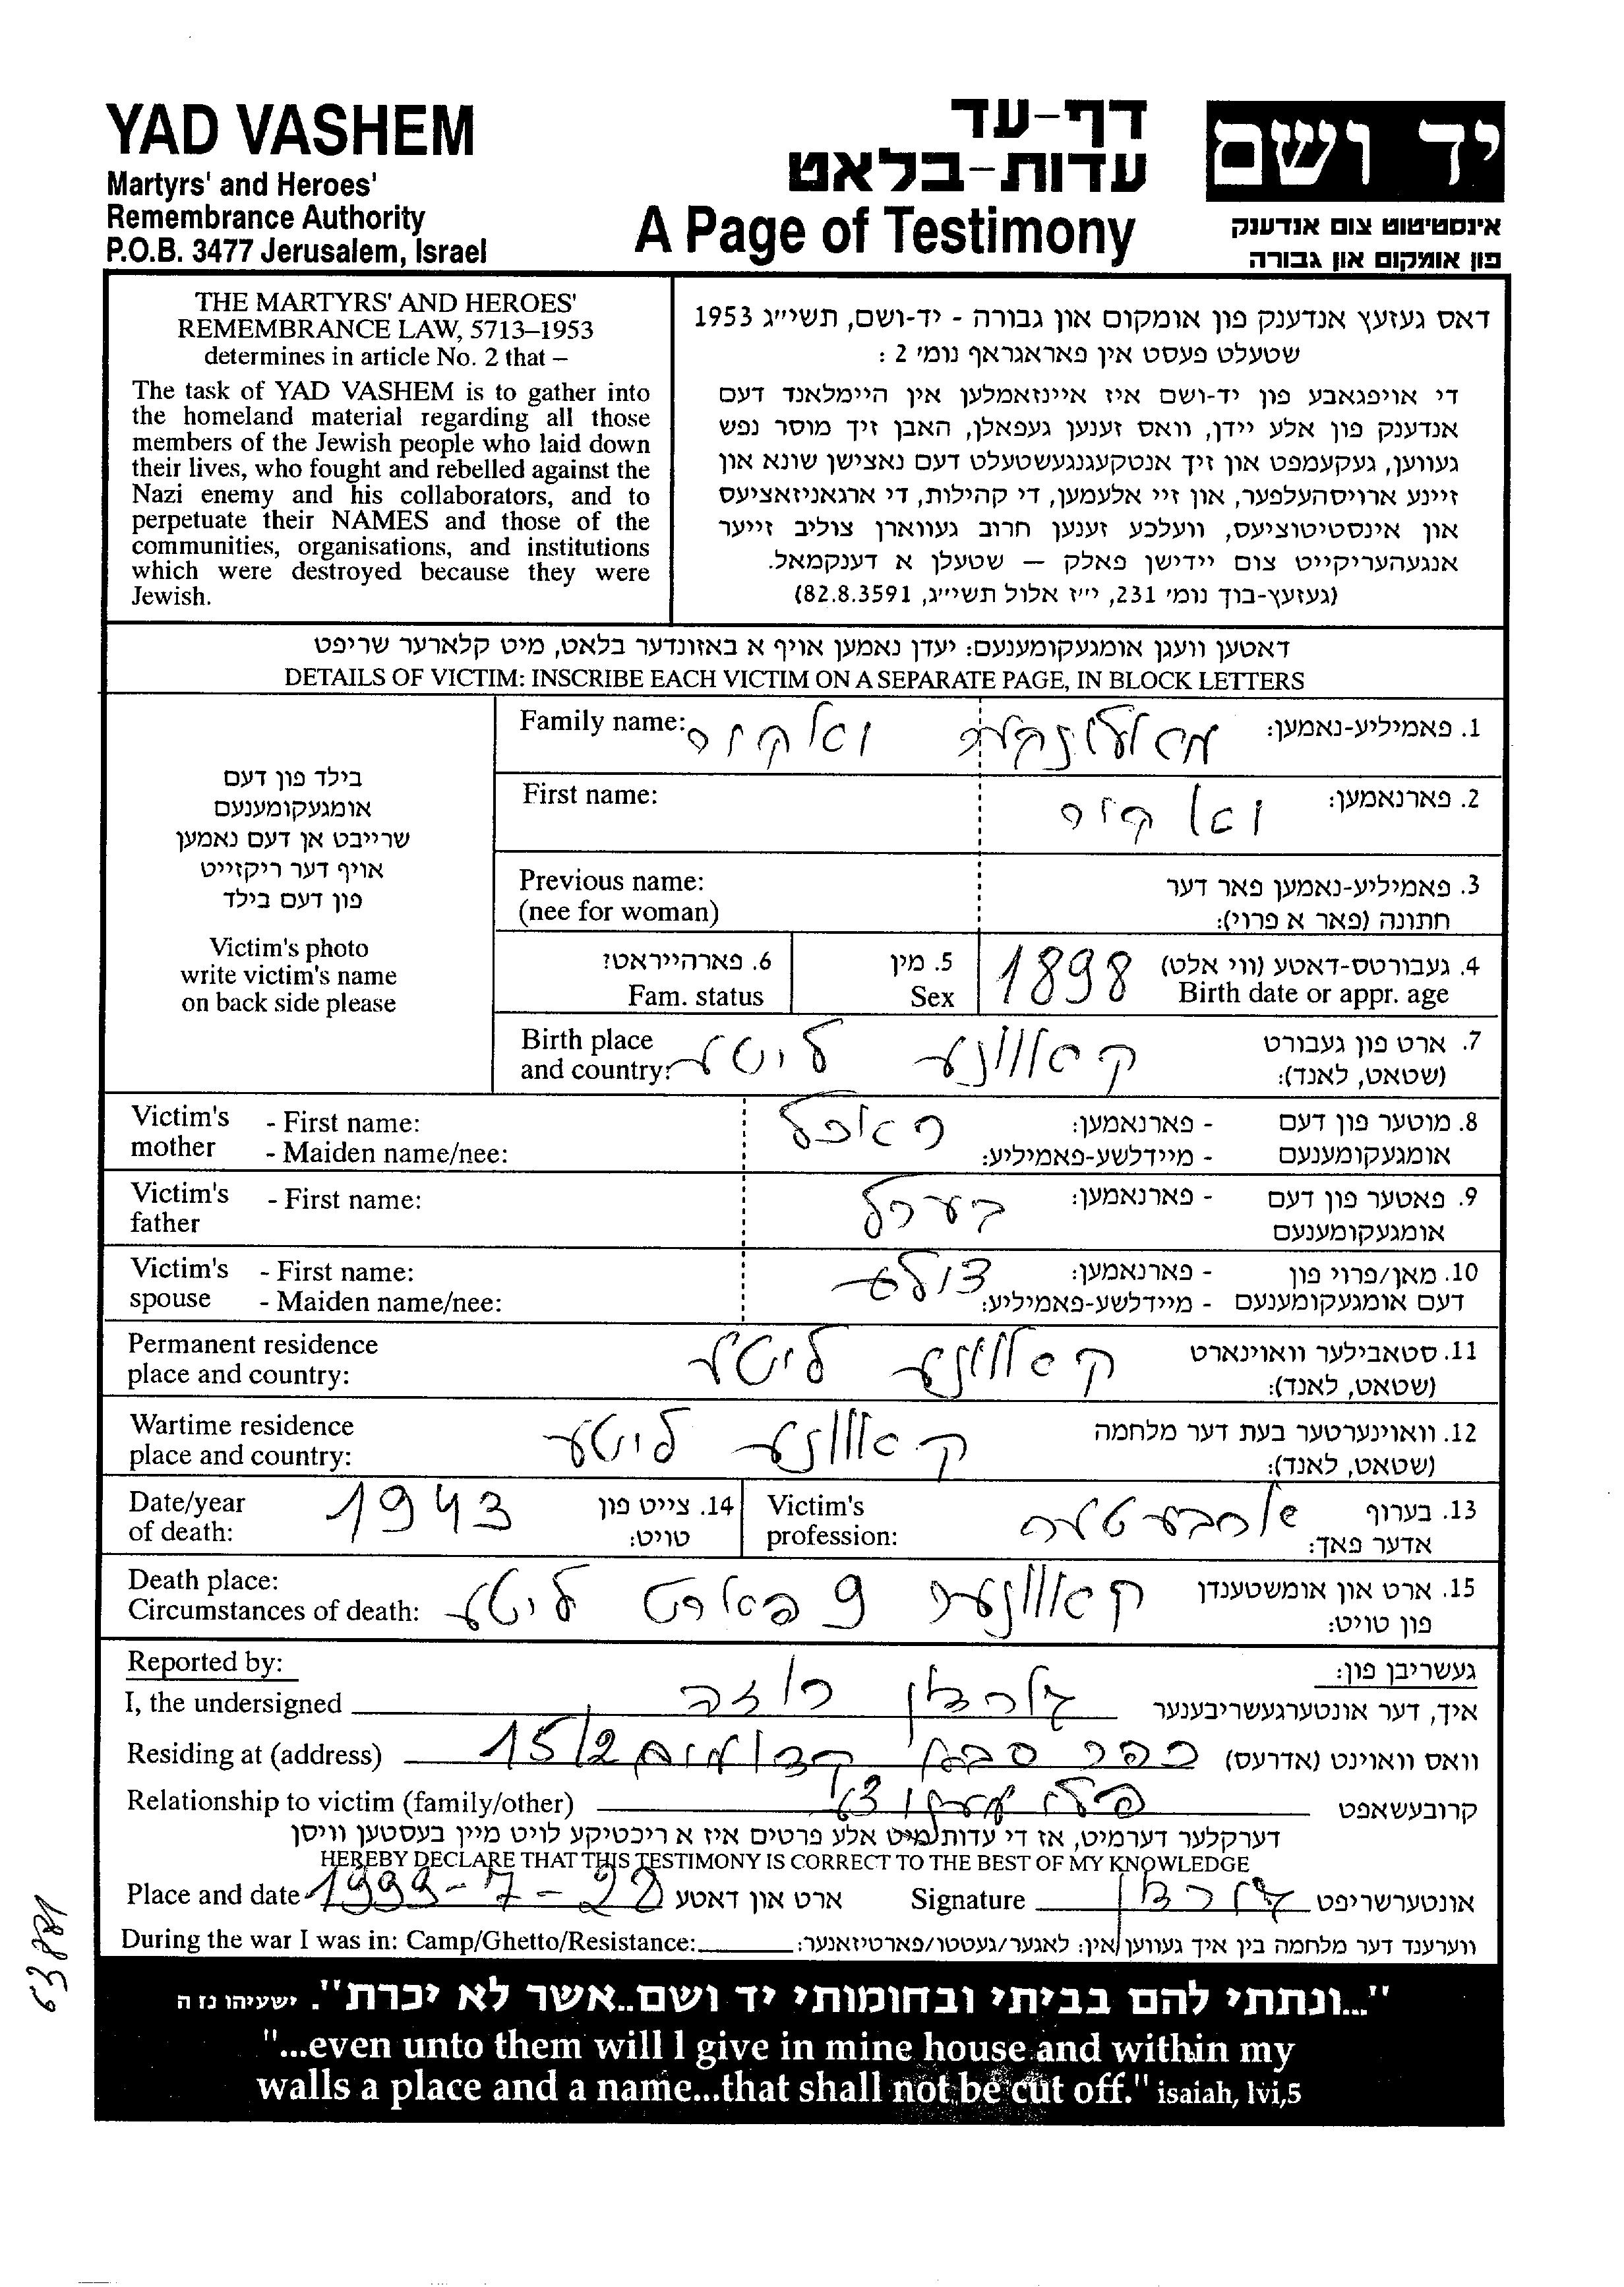 YAD VASHEM
Martyrs' and Heroes'
Remembrance Authority
P.O.B. 3477 Jerusalem, Israel
דף-עד
עדות-בלאט
A Page of Testimony
יד ושם
אינסטיטוט צום אנדענק
פון אומקום און גבורה
THE MARTYRS' AND HEROES'
REMEMBRANCE LAW, 5713–1953
determines in article No. 2 that –
The task of YAD VASHEM is to gather into
the homeland material regarding all those
members of the Jewish people who laid down
their lives, who fought and rebelled against the
Nazi enemy and his collaborators, and to
perpetuate their NAMES and those of the
communities, organisations, and institutions
which were destroyed because they were
Jewish.
דאס געזעץ אנדענק פון אומקום און גבורה - יד-ושם, תשי״ג 1953
שטעלט פעסט אין פאראגראף נומ׳ 2 :
די אויפגאבע פון יד-ושם איז איינזאמלען אין היימלאנד דעם
אנדענק פון אלע יידן, וואס זענען געפאלן, האבן זיך מוסר נפש
געווען, געקעמפט און זיך אנטקעגנגעשטעלט דעם נאצישן שונא און
זיינע ארויסהעלפער, און זיי אלעמען, די קהילות, די ארגאניזאציעס
און אינסטיטוציעס, וועלכע זענען חרוב געווארן צוליב זייער
אנגעהעריקייט צום יידישן פאלק — שטעלן א דענקמאל.
(געזעץ-בוך נומ׳ 231, י״ז אלול תשי״ג, 82.8.3591)
דאטען וועגן אומגעקומענעם: יעדן נאמען אויף א באזונדער בלאט, מיט קלארער שריפט
DETAILS OF VICTIM: INSCRIBE EACH VICTIM ON A SEPARATE PAGE, IN BLOCK LETTERS
בילד פון דעם
אומגעקומענעם
שרייבט אן דעם נאמען
אויף דער ריקזייט
פון דעם בילד
Victim's photo
write victim's name
on back side please
Family name:
1. פאמיליע-נאמען:
First name:
2. פארנאמען:
Previous name:
(nee for woman)
3. פאמיליע-נאמען פאר דער
חתונה (פאר א פרוי):
6. פארהייראט?
Fam. status
5. מין
Sex
1898
4. געבורטס-דאטע (ווי אלט)
Birth date or appr. age
Birth place
and country:
קאוונע ליטע
7. ארט פון געבורט
(שטאט, לאנד):
Victim's mother - First name:
- Maiden name/nee:
8. מוטער פון דעם אומגעקומענעם - פארנאמען:
- מיידלשע-פאמיליע:
Victim's father - First name:
בערל
9. פאטער פון דעם אומגעקומענעם - פארנאמען:
Victim's spouse - First name:
- Maiden name/nee:
10. מאן/פרוי פון דעם אומגעקומענעם - פארנאמען:
- מיידלשע-פאמיליע:
Permanent residence
place and country:
קאוונע ליטע
11. סטאבילער וואוינארט
(שטאט, לאנד):
Wartime residence
place and country:
קאוונע ליטע
12. וואוינערטער בעת דער מלחמה
(שטאט, לאנד):
Date/year
of death:
1943
14. צייט פון
טויט:
Victim's
profession:
ארבעטער
13. בערוף
אדער פאך:
Death place:
Circumstances of death:
קאוונע 9 פארט ליטע
15. ארט און אומשטענדן
פון טויט:
Reported by:
געשריבן פון:
I, the undersigned
גורדון רוזה
איך, דער אונטערגעשריבענער
Residing at (address)
כפר סבא קדומים 15/2
וואס וואוינט (אדרעס)
Relationship to victim (family/other)
קרובעשאפט
דערקלער דערמיט, אז די עדות מיט אלע פרטים איז א ריכטיקע לויט מיין בעסטען וויסן
HEREBY DECLARE THAT THIS TESTIMONY IS CORRECT TO THE BEST OF MY KNOWLEDGE
Place and date 1999-7-22 ארט און דאטע
Signature גורדון אונטערשריפט
During the war I was in: Camp/Ghetto/Resistance:
ווערענד דער מלחמה בין איך געווען אין: לאגער/געטטו/פארטיזאנער:
63881
"...ונתתי להם בביתי ובחומותי יד ושם..אשר לא יכרת". ישעיהו נז ה
"...even unto them will I give in mine house and within my
walls a place and a name...that shall not be cut off." isaiah, lvi,5